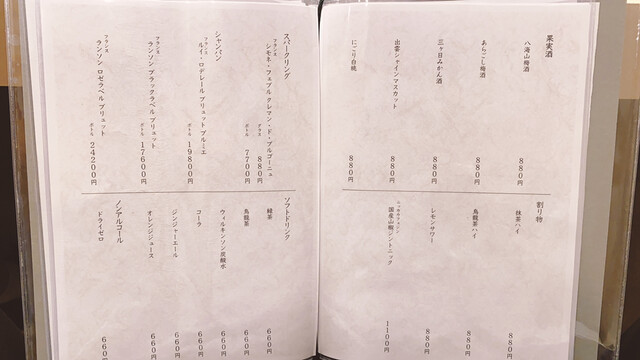 果実酒
八海山梅酒 880円
あらごし梅酒 880円
三ヶ日みかん酒 880円
出雲シャインマスカット 880円
にごり白桃 880円
割り物
抹茶ハイ 880円
烏龍茶ハイ 880円
レモンサワー 880円
国産山椒ジントニック 1100円
スパークリング
フランス
シモネ・フェブル クレマン・ド・ブルゴーニュ
グラス 880円
ボトル 7700円
シャンパン
フランス
ルイ・ロデレール ブリュット プルミエ
ボトル 19800円
フランス
ランソン ブラックラベル ブリュット
ボトル 17600円
フランス
ランソン ロゼラベル ブリュット
ボトル 24200円
ソフトドリンク
緑茶 660円
烏龍茶 660円
ウィルキンソン炭酸水 660円
コーラ 660円
ジンジャーエール 660円
オレンジジュース 660円
ノンアルコール
ドライゼロ 660円